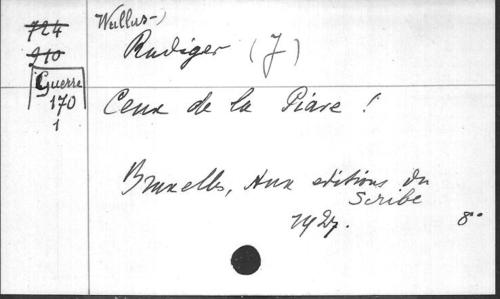 Wullus-)
724
910
Rudiger (J)
Guerre
170
1
Ceux de la Piave !
Bruxelles, Aux editions du
Scribe
1927.
8°